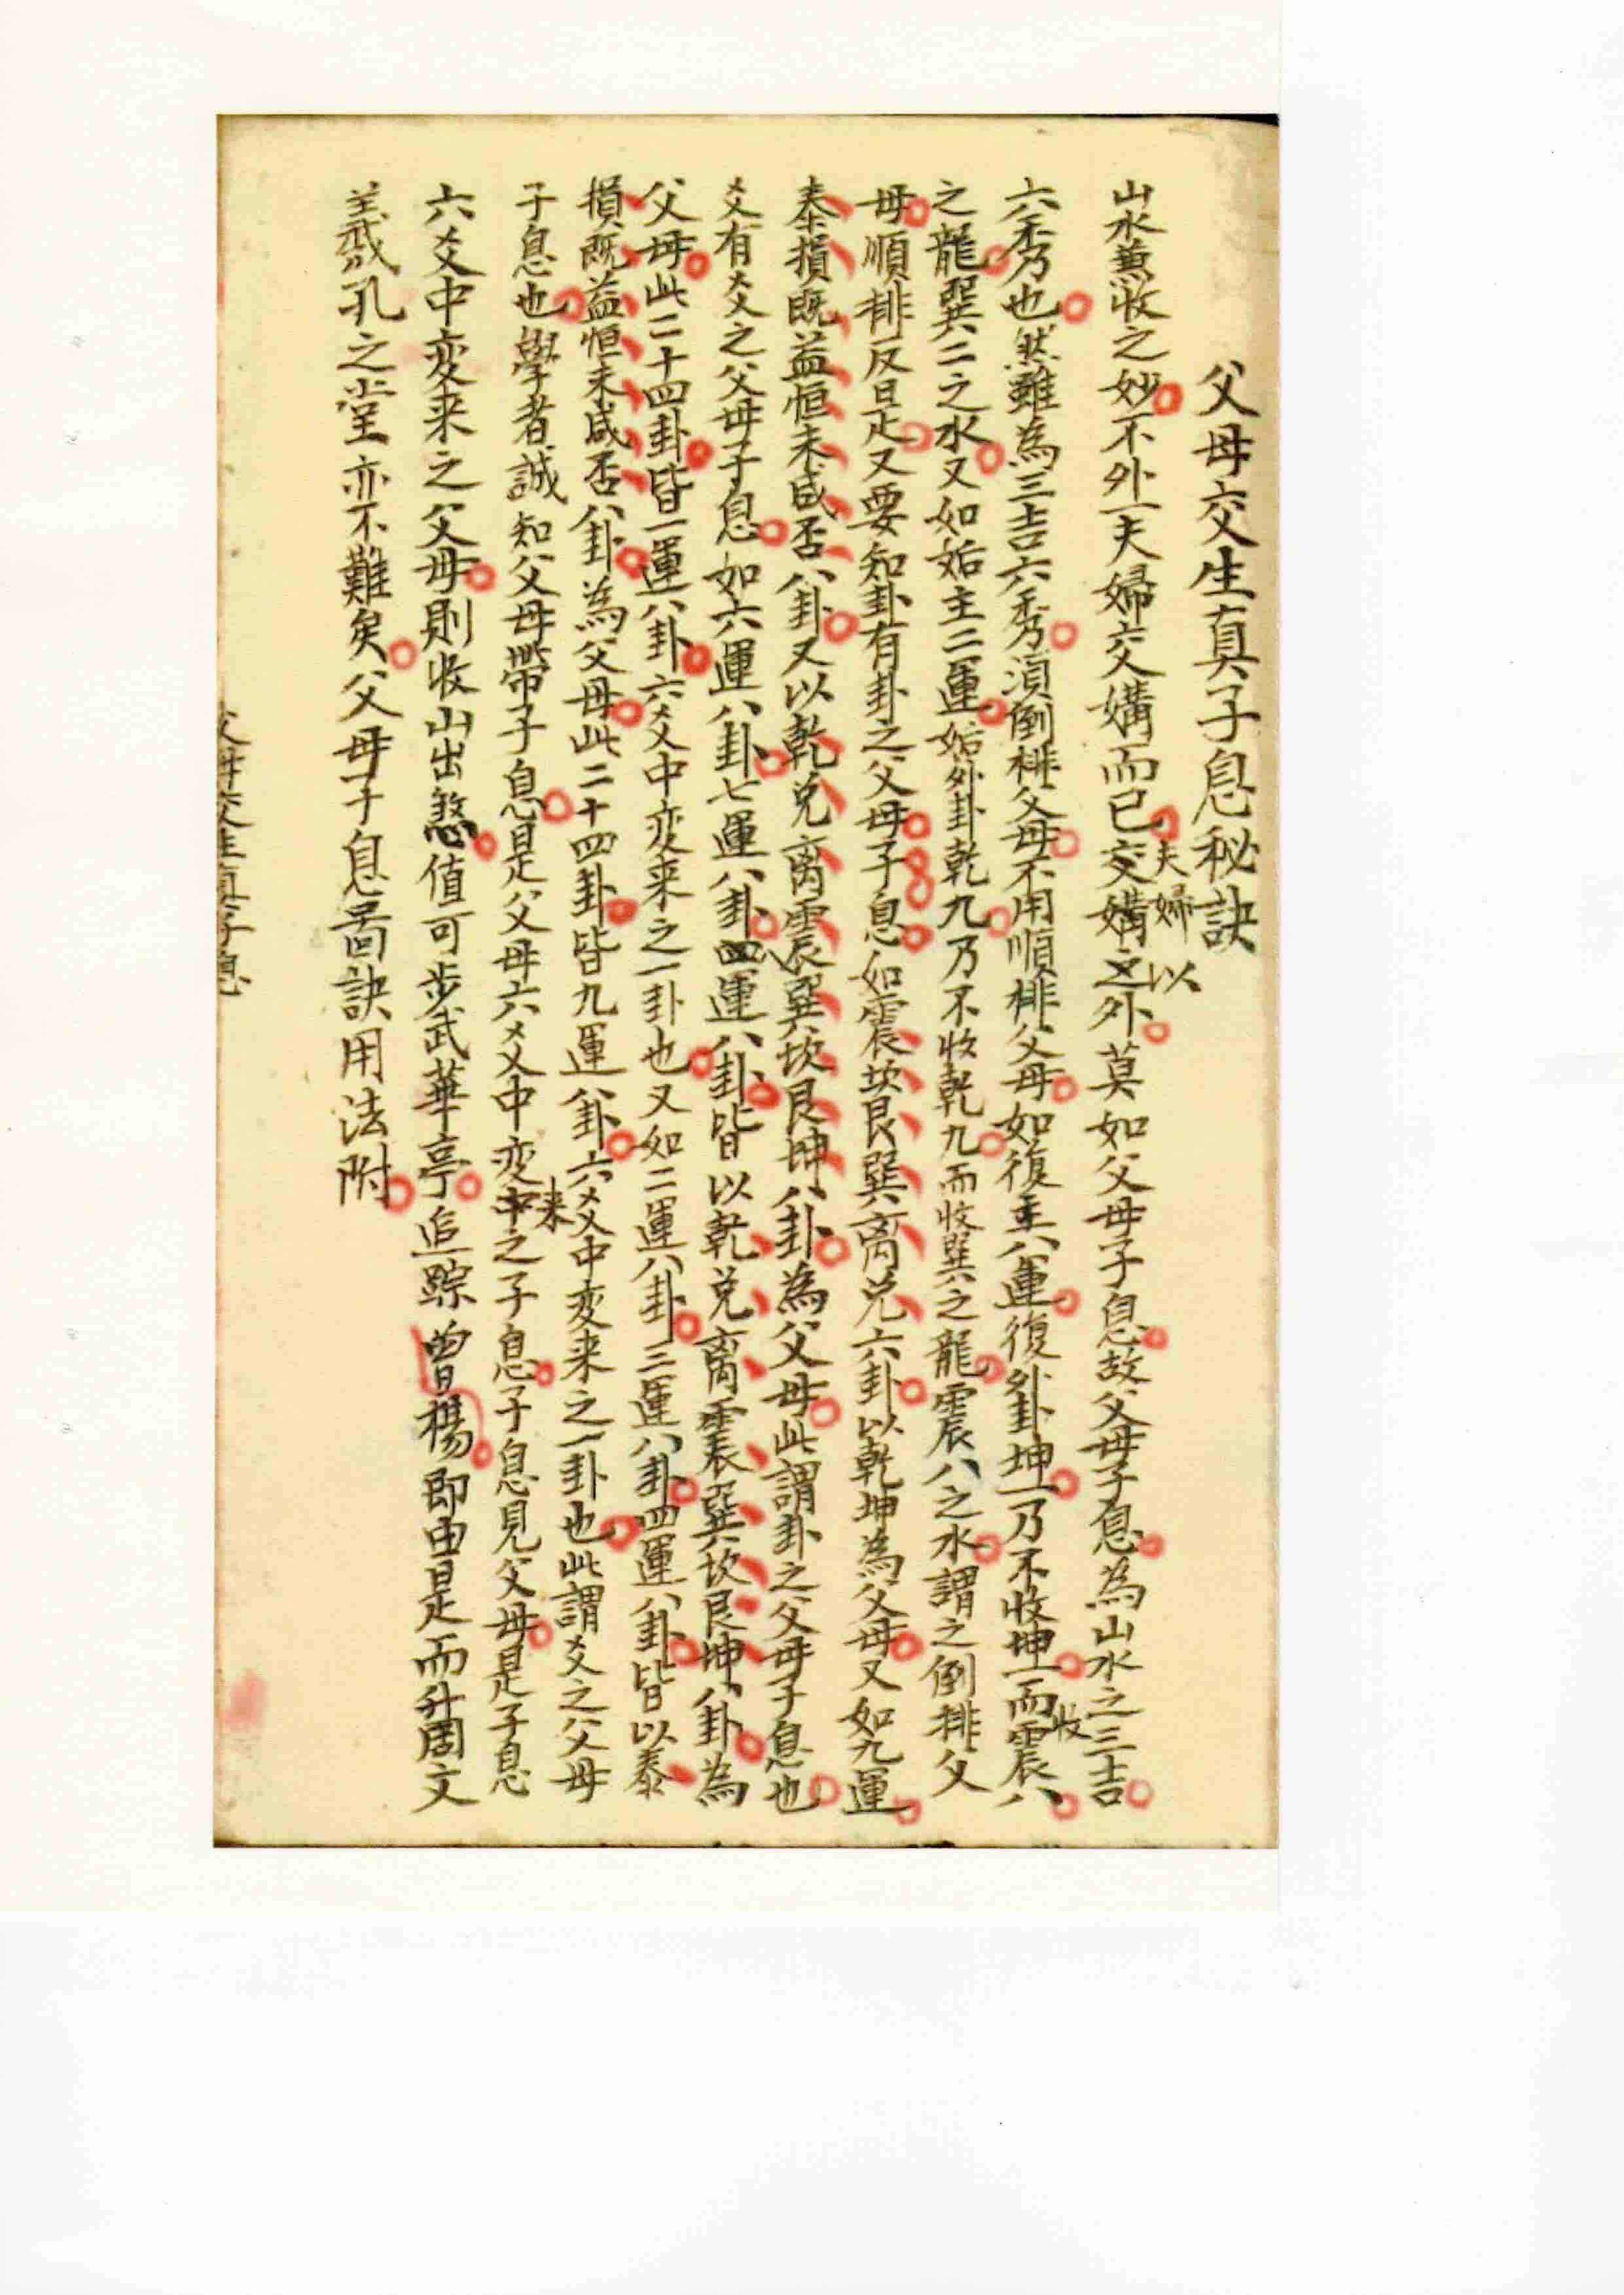 父母交生真子息秘訣
山水兼收之妙不外一夫婦交媾而已夫婦交媾之外以莫如父母子息故父母子息為山水之三吉
六秀也然雖為三吉六秀湏倒排父母不用順排父母如復主八運復外卦坤一乃不收坤一而收震八
之龍巽二之水又如姤主二運姤外卦乾九乃不收乾九而收巽二之龍震八之水謂之倒排父
母順排反是又要知卦有卦之父母子息如震坎艮巽离兑六卦以乾坤為父母又如九運
泰損既益恒未咸否八卦又以乾兑离震巽坎艮坤八卦為父母此謂卦之父母子息也
爻有爻之父母子息如六運八卦七運八卦四運八卦皆以乾兑离震巽坎艮坤八卦為
父母此二十四卦皆一運八卦六爻中変来之一卦也又如二運八卦三運八卦四運八卦皆以泰
損既益恒未咸否八卦為父母此二十四卦皆九運八卦六爻中変来之一卦也此謂爻之父母
子息也學者誠知父母帶子息是父母六爻中変来之子息子息見父母是子息
六爻中変来之父母則收山出煞值可步武華亭追踪曾楊即由是而升周文
羲孔之堂亦不難矣父母子息啚訣用法附
父母交生真子息